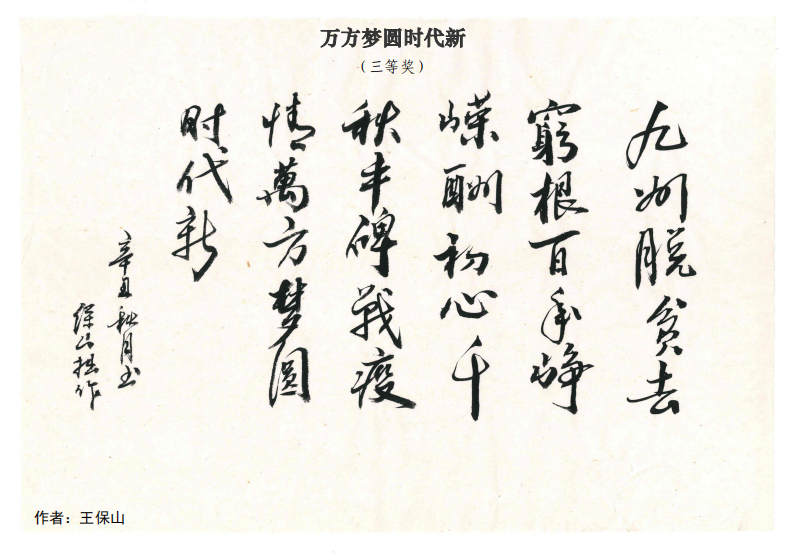 万方梦圆时代新
（三等奖）
九州脱贫去
窮根百年峥
嵘酬初心千
秋丰碑战疫
情萬方梦圆
时代新
辛丑秋月书
保山拙作
作者：王保山